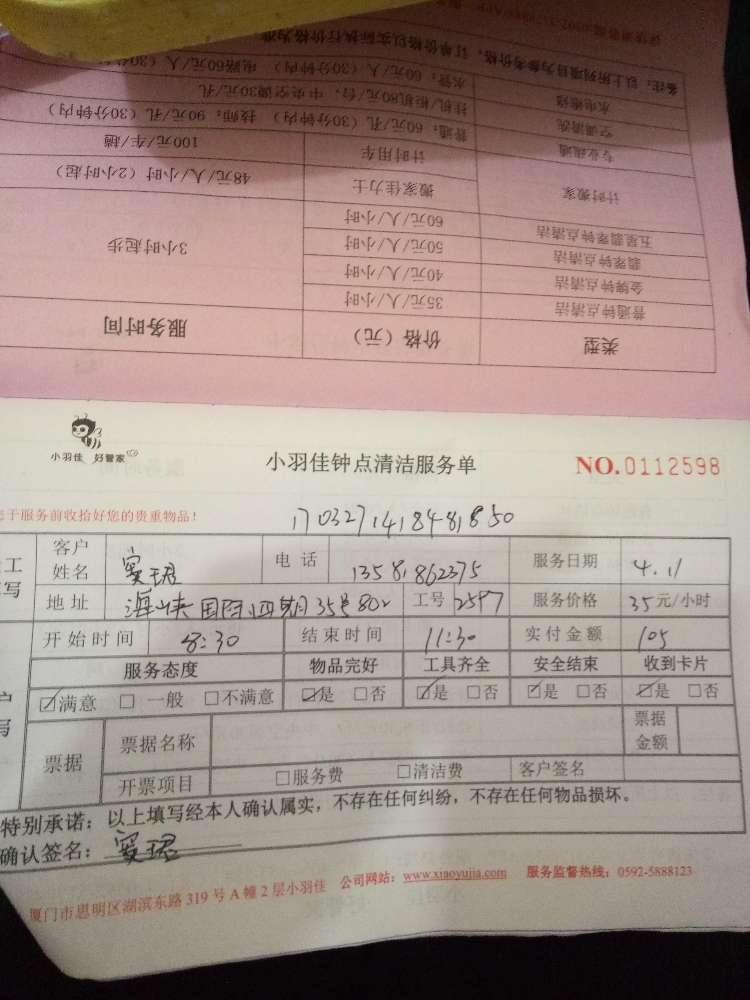 类型 价格（元） 服务时间
普通钟点清洁 35元/人/小时
金牌钟点清洁 40元/人/小时
翡翠钟点清洁 50元/人/小时 3小时起步
五星翡翠钟点清洁 60元/人/小时
计时搬家 搬家佳力士 48元/人/小时（2小时起）
计时用车 100元/车/趟
专业疏通 普通：60元/孔（30分钟内） 技师：90元/孔
空调清洗 挂机/柜机80元/台，中央空调30元/孔
水电维修 水管：60元/人（30分钟内） 电路60元/人（30分
备注：以上所列项目为参考价格，订单价格以实际执行价格为准。
小羽佳 好管家
小羽佳钟点清洁服务单
NO.0112598
于服务前收拾好您的贵重物品！
1703271418481850
工 客户姓名 窦珺 电话 13581862375 服务日期 4.11
写 地址 海峡国际四期35号802 工号 2597 服务价格 35元/小时
开始时间 8:30 结束时间 11:30 实付金额 105
服务态度 物品完好 工具齐全 安全结束 收到卡片
户 ☑满意 □一般 □不满意 ☑是 □否 ☑是 □否 ☑是 □否 ☑是 □否
写 票据 票据名称 票据金额
开票项目 □服务费 □清洁费 客户签名
特别承诺：以上填写经本人确认属实，不存在任何纠纷，不存在任何物品损坏。
确认签名：窦珺
厦门市思明区湖滨东路319号A幢2层小羽佳 公司网站：www.xiaoyujia.com 服务监督热线：0592-5888123